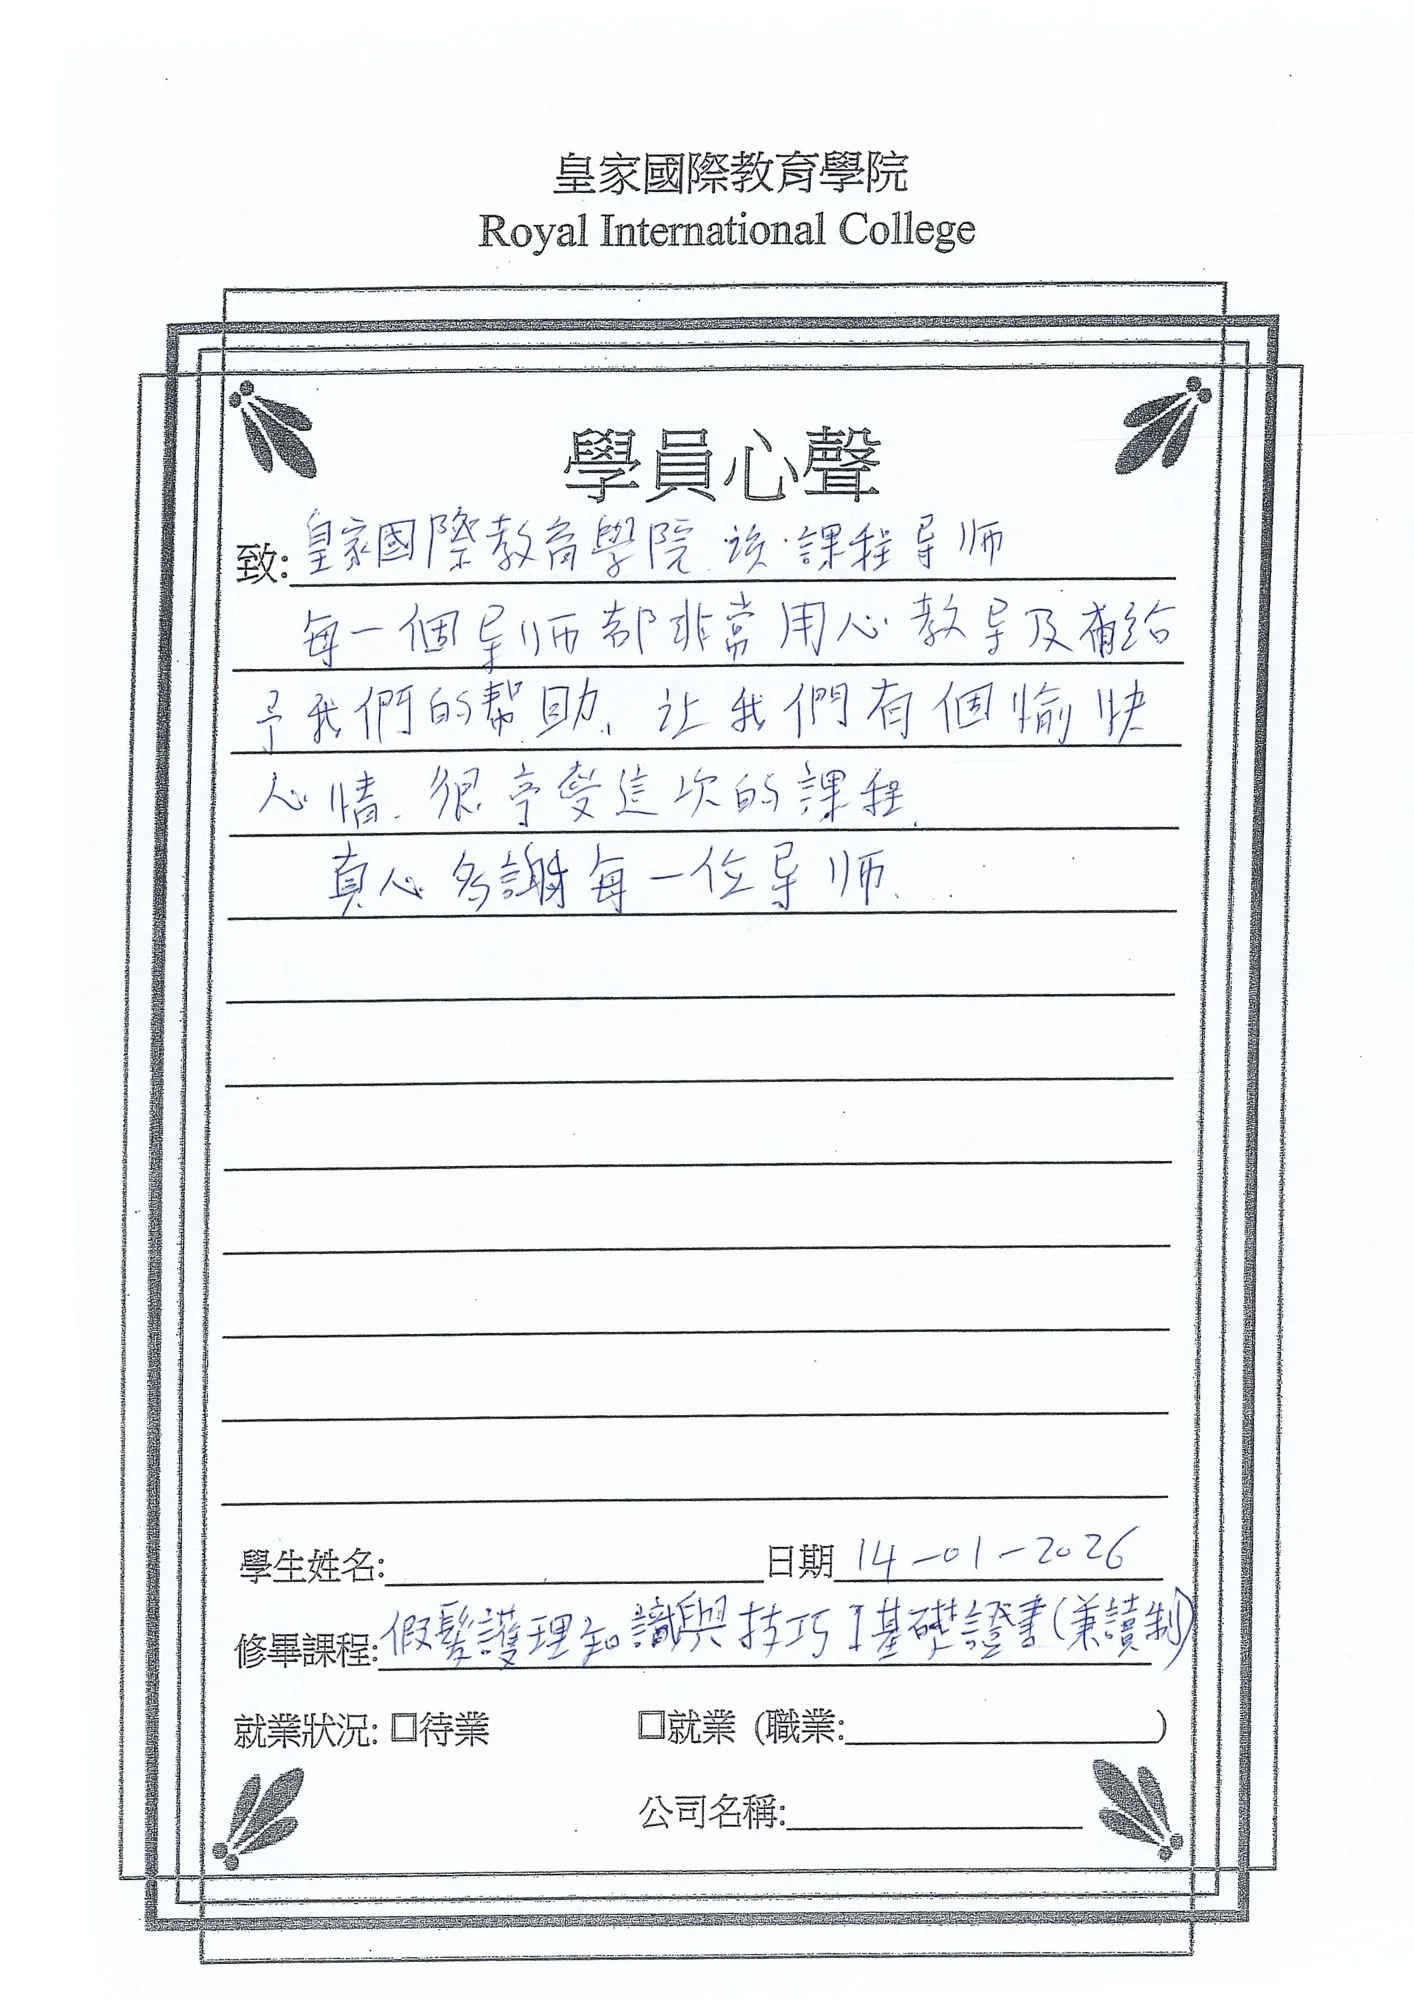 皇家國際教育學院
Royal International College
學員心聲
致: 皇家國際教育學院 該課程导师
每一個导师都非常用心教导及補給
予我們的幫助、让我們有個愉快
心情. 很享受這次的課程.
真心多謝每一位导师.
學生姓名:
日期 14-01-2026
修畢課程: 假髮護理知識與技巧I基礎證書(兼讀制)
就業狀況: □待業 □就業 (職業: )
公司名稱: